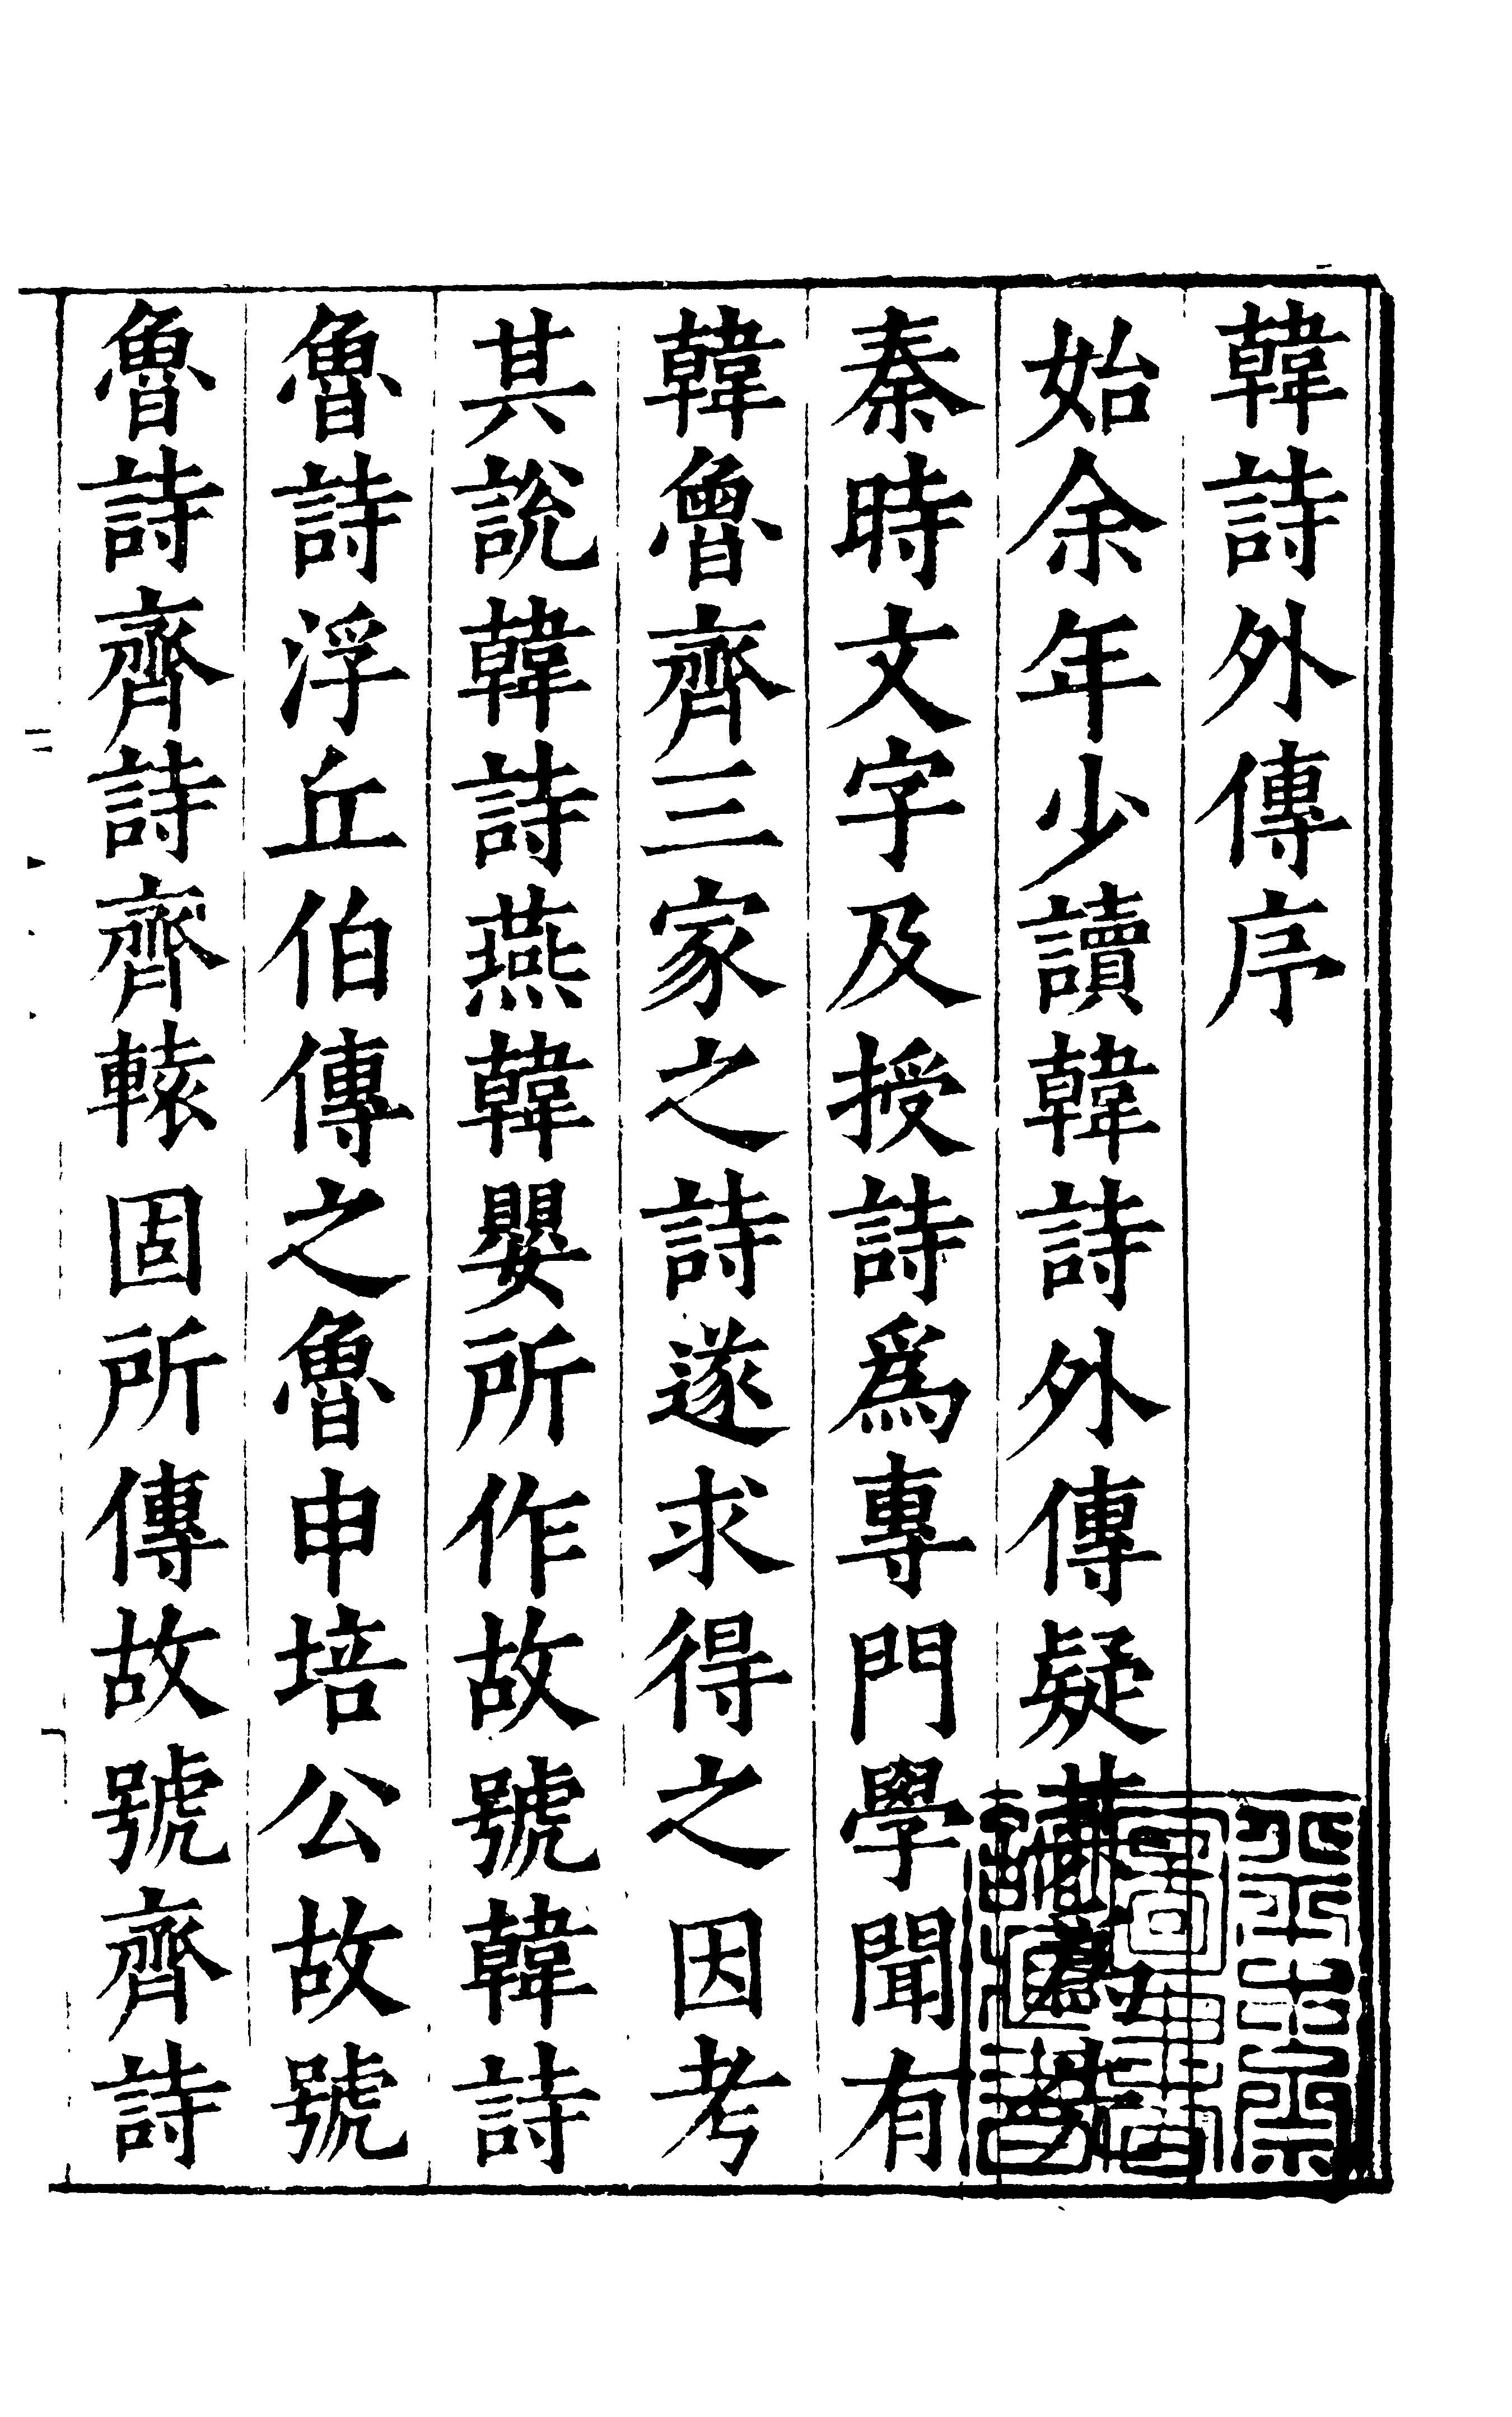 韓詩外傳序
始余年少讀韓詩外傳疑
秦時文字及授詩爲專門學聞有
韓魯齊三家之詩遂求得之因考
其說韓詩燕韓嬰所作故號韓詩
魯詩浮丘伯傳之魯申培公故號
魯詩齊詩齊轅固所傳故號齊詩